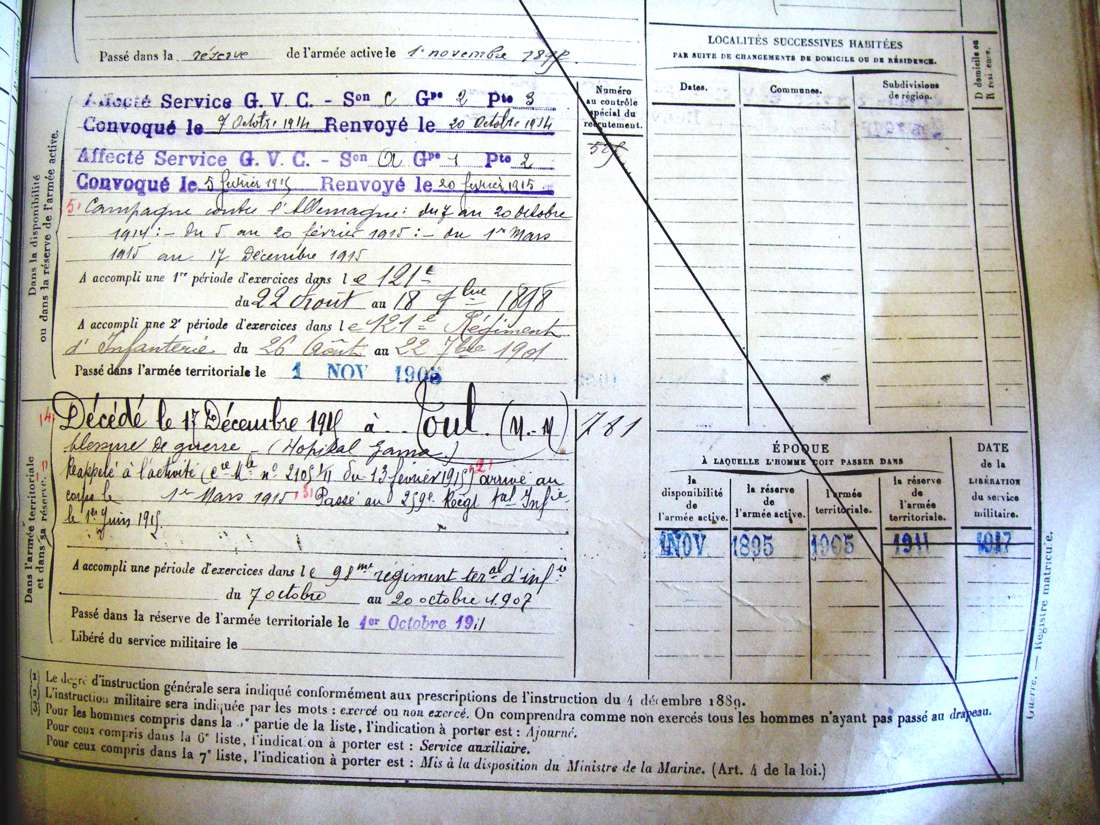 Passé dans la réserve de l'armée active le 1er novembre
Dans la disponibilité
ou dans la réserve de l'armée active.
Affecté Service G. V. C. - Son C Gpe 2 Pte 3
Convoqué le 7 Octbre 1914 Renvoyé le 20 Octobre 1914
Affecté Service G. V. C. - Son A Gpe 1 Pte 2
Convoqué le 5 février 1915 Renvoyé le 20 février 1915
5 Campagne contre l'Allemagne: du 7 au 20 Octobre
1914 :- Du 5 au 20 février 1915 :- du 1er Mars
1915 au 17 Décembre 1915
A accompli une 1re période d'exercices dans le 121e
du 22 Aout au 18 7bre 1898
A accompli une 2e période d'exercices dans le 121e Régiment
d'Infanterie du 26 Août au 22 7bre 1901
Passé dans l'armée territoriale le 1 NOV 1905
Numéro
au contrôle
spécial du
recrutement.
Dans l'armée territoriale
et dans sa réserve.
(4) Décédé le 17 Décembre 1915 à Toul (M.-M) 781
blessure de guerre (Hopital Gama)
Rappelé à l'activité (Cre Mle no du 13 février 1915) (2) arrivé au
corps le 1er Mars 1915 (3) Passé au 259e Régt tal Infie
le 1er Juin 1915.
A accompli une période d'exercices dans le 98me régiment teral d'infie
du 7 octobre au 20 octobre 1907
Passé dans la réserve de l'armée territoriale le 1er Octobre 1911
Libéré du service militaire le
LOCALITÉS SUCCESSIVES HABITÉES
PAR SUITE DE CHANGEMENTS DE DOMICILE OU DE RÉSIDENCE.
Dates. Communes. Subdivisions
de région.
D domicile ou
R résidence.
ÉPOQUE
À LAQUELLE L'HOMME DOIT PASSER DANS
la
disponibilité
de
l'armée active.
la réserve
de
l'armée active.
l'armée
territoriale.
la réserve
de
l'armée
territoriale.
DATE
de la
LIBÉRATION
du service
militaire.
1 NOV 1895 1905 1911 1917
Guerre. — Registre matricule.
(1) Le degré d'instruction générale sera indiqué conformément aux prescriptions de l'instruction du 4 décembre 1889.
(2) L'instruction militaire sera indiquée par les mots : exercé ou non exercé. On comprendra comme non exercés tous les hommes n'ayant pas passé au drapeau.
(3) Pour les hommes compris dans la partie de la liste, l'indication à porter est : Ajourné.
Pour ceux compris dans la 6e liste, l'indication à porter est : Service auxiliaire.
Pour ceux compris dans la 7e liste, l'indication à porter est : Mis à la disposition du Ministre de la Marine. (Art. 4 de la loi.)